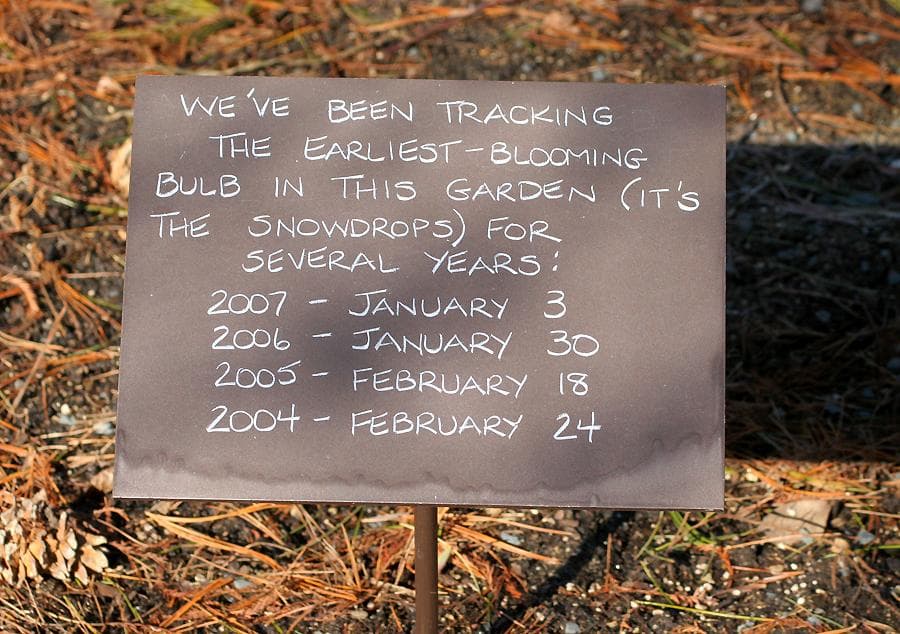 WE'VE BEEN TRACKING
THE EARLIEST-BLOOMING
BULB IN THIS GARDEN (IT'S
THE SNOWDROPS) FOR
SEVERAL YEARS:
2007 - JANUARY 3
2006 - JANUARY 30
2005 - FEBRUARY 18
2004 - FEBRUARY 24